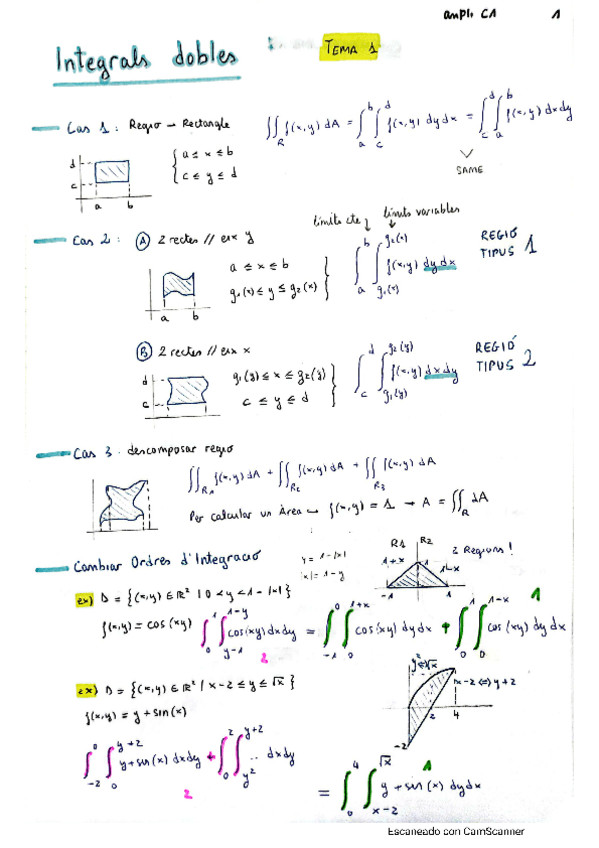 ampli CA 1
Integrals dobles TEMA 1
Cas 1: Regió → Rectangle
d
c
a b
{ a ≤ x ≤ b
c ≤ y ≤ d
∬_R f(x,y) dA = ∫_a^b ∫_c^d f(x,y) dy dx = ∫_c^d ∫_a^b f(x,y) dx dy
SAME
límits cte límits variables
Cas 2: (A) 2 rectes // eix y
a b
a ≤ x ≤ b
g₁(x) ≤ y ≤ g₂(x) }
∫_a^b ∫_{g₁(x)}^{g₂(x)} f(x,y) dy dx
REGIÓ TIPUS 1
(B) 2 rectes // eix x
d
c
g₁(y) ≤ x ≤ g₂(y)
c ≤ y ≤ d }
∫_c^d ∫_{g₁(y)}^{g₂(y)} f(x,y) dx dy
REGIÓ TIPUS 2
Cas 3: descomposar regió
∬_{R1} f(x,y) dA + ∬_{R2} f(x,y) dA + ∬_{R3} f(x,y) dA
Per calcular un Àrea → f(x,y) = 1 → A = ∬_R dA
Cambiar Ordres d'Integració
y = 1-|x|
|x| = 1-y
R1 R2
1+x 1-x
-1 1
2 Regions!
ex) D = {(x,y) ∈ ℝ² | 0 < y < 1-|x|}
f(x,y) = cos(xy) ∫_0^1 ∫_{y-1}^{1-y} cos(xy) dx dy = ∫_{-1}^0 ∫_0^{1+x} cos(xy) dy dx + ∫_0^1 ∫_0^{1-x} cos(xy) dy dx
2 1
ex) D = {(x,y) ∈ ℝ² / x-2 ≤ y ≤ √x}
f(x,y) = y + sin(x)
y² ⇔ √x
x-2 ⇔ y+2
2 4
-2
∫_{-2}^0 ∫_0^{y+2} y + sin(x) dx dy + ∫_0^2 ∫_{y²}^{y+2} .. dx dy
2
= ∫_0^4 ∫_{x-2}^{√x} y + sin(x) dy dx
1
Escaneado con CamScanner